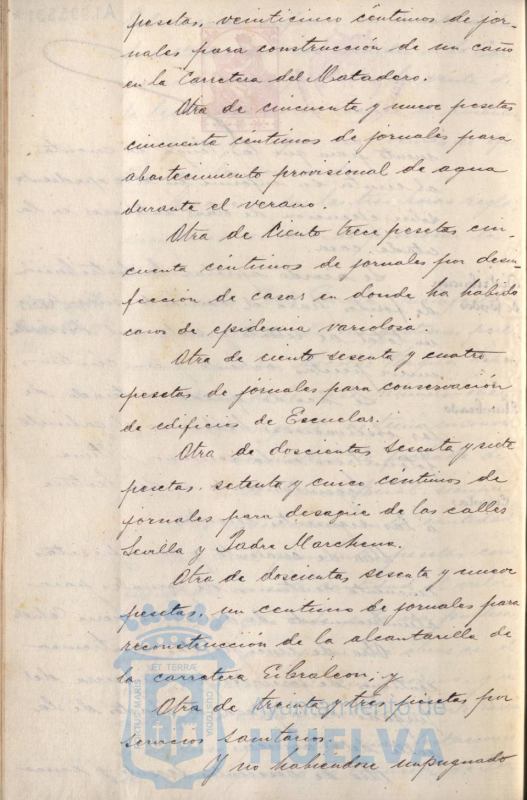 pesetas, veinticinco céntimos de jor-
nales para construcción de un caño
en la Carretera del Matadero.
Otra de cincuenta y nueve pesetas
cincuenta céntimos de jornales para
abastecimiento provisional de agua
durante el verano.
Otra de Ciento trece pesetas cin-
cuenta céntimos de jornales por desin-
fección de casas en donde ha habido
casos de epidemia variolosa.
Otra de ciento sesenta y cuatro
pesetas de jornales para conservación
de edificios de Escuelas.
Otra de doscientas sesenta y siete
pesetas. setenta y cinco céntimos de
jornales para desagüe de las calles
Sevilla y Padre Marchena.
Otra de doscientas sesenta y nueve
pesetas, un centimo de jornales para
reconstrucción de la alcantarilla de
la carratera Gibraleon; y
Otra de treinta y tres pesetas por
servicios sanitarios.
Y no habiendose impugnado
Ayuntamiento de
HUELVA